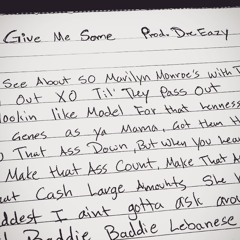 Give Me Some Prod. Dr. Eazy
See About 50 Marilyn Monroe's with T
Out XO Til' They Pass Out
lookin like Model For that henness
Genes as ya Mama, Got them H
That Ass Down, But when you hea
Make that Ass Count, Make That A
Cash Large Amounts She
I aint gotta ask arou
Baddie Baddie Lebanese